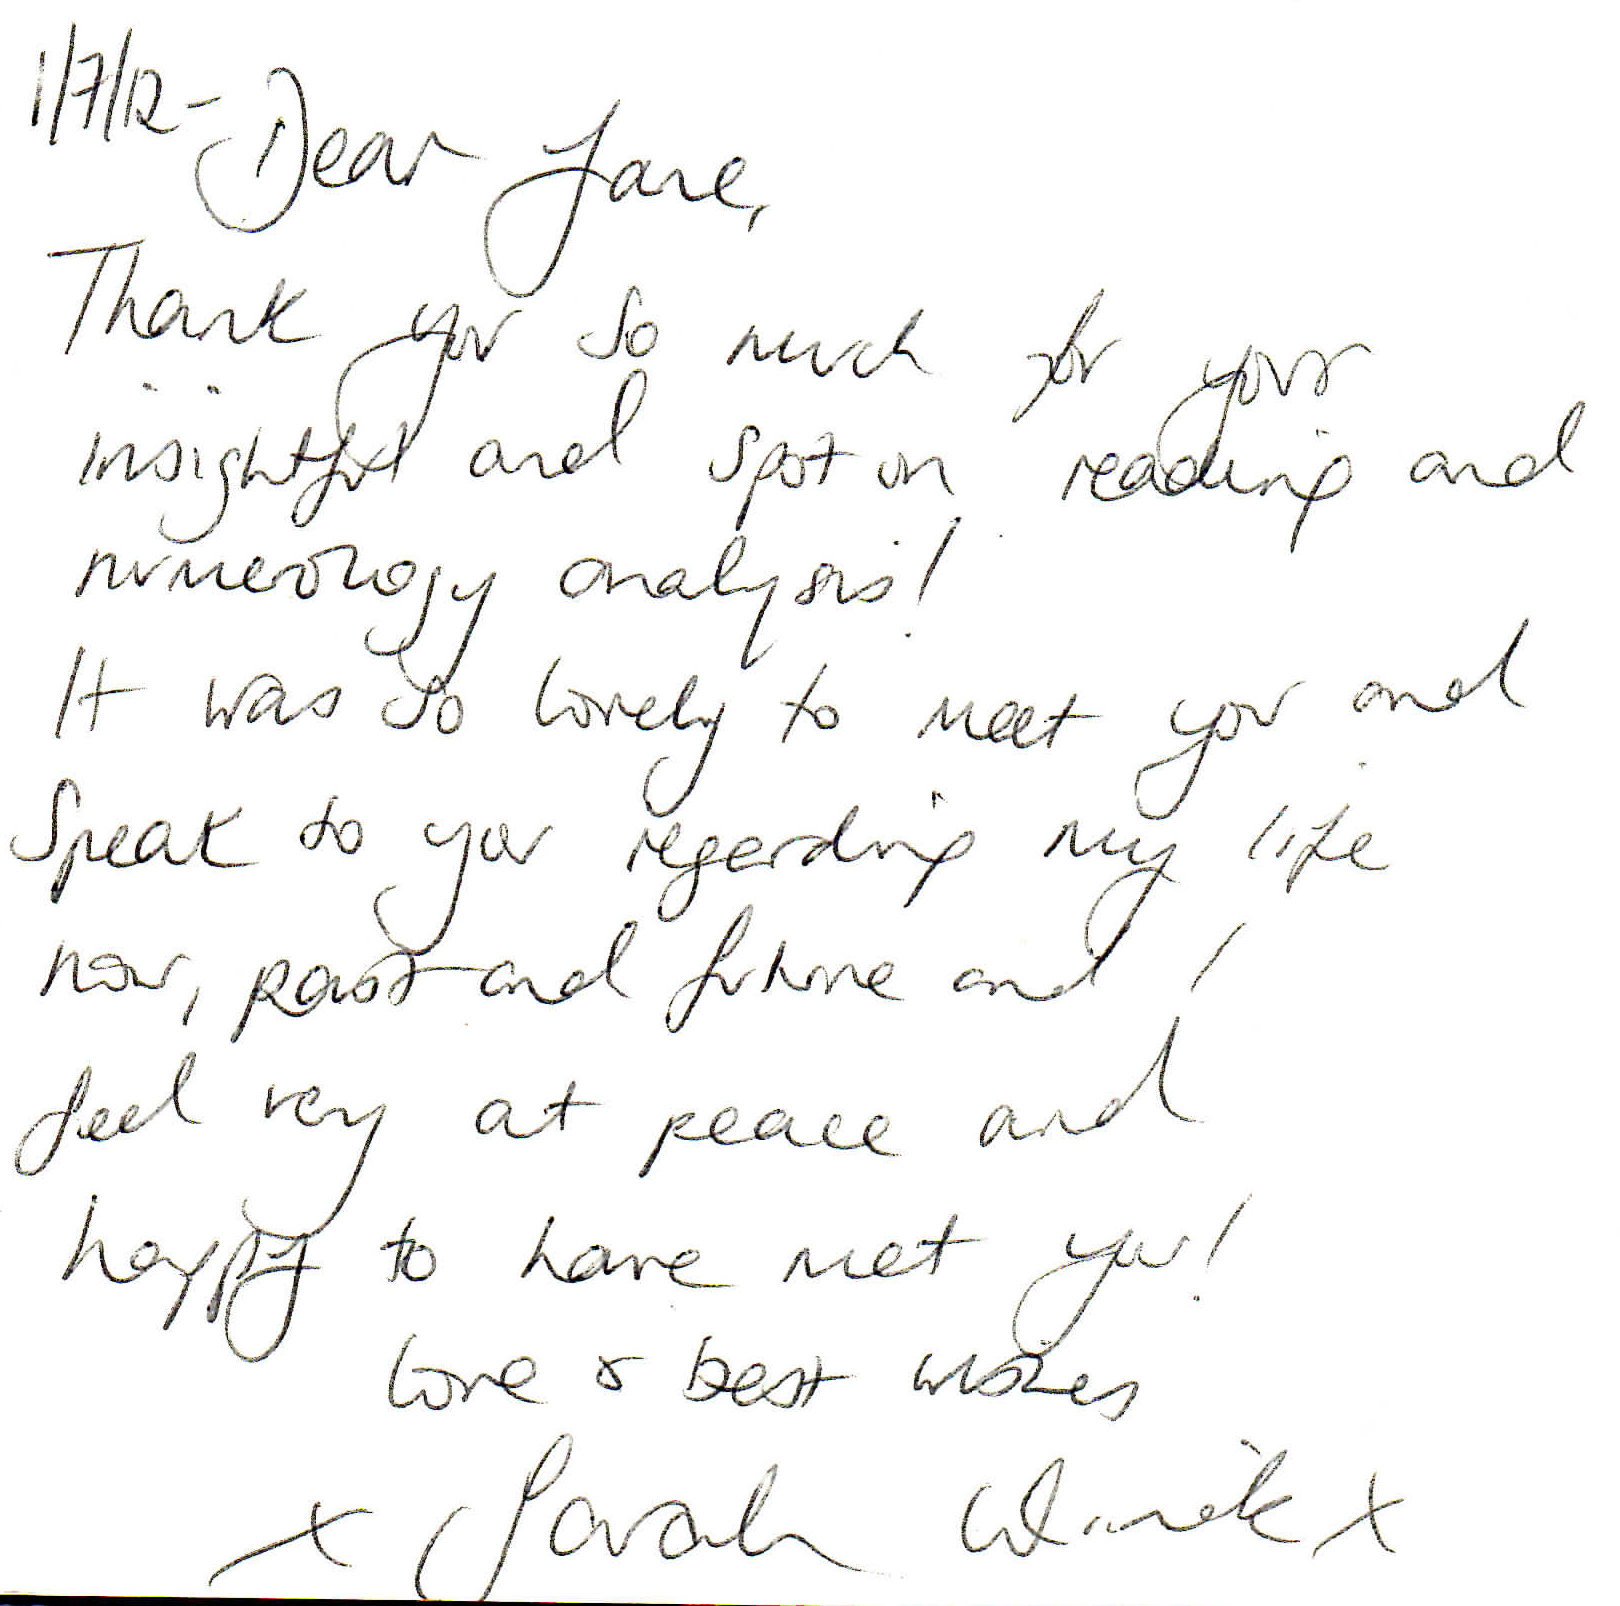 1/7/12 - Dear Jane,
Thank you so much for your
insightful and spot on reading and
numerology analysis!
It was so lovely to meet you and
speak to you regarding my life
now, past and future and I
feel very at peace and
happy to have met you!
Love & best wishes
x Sarah x